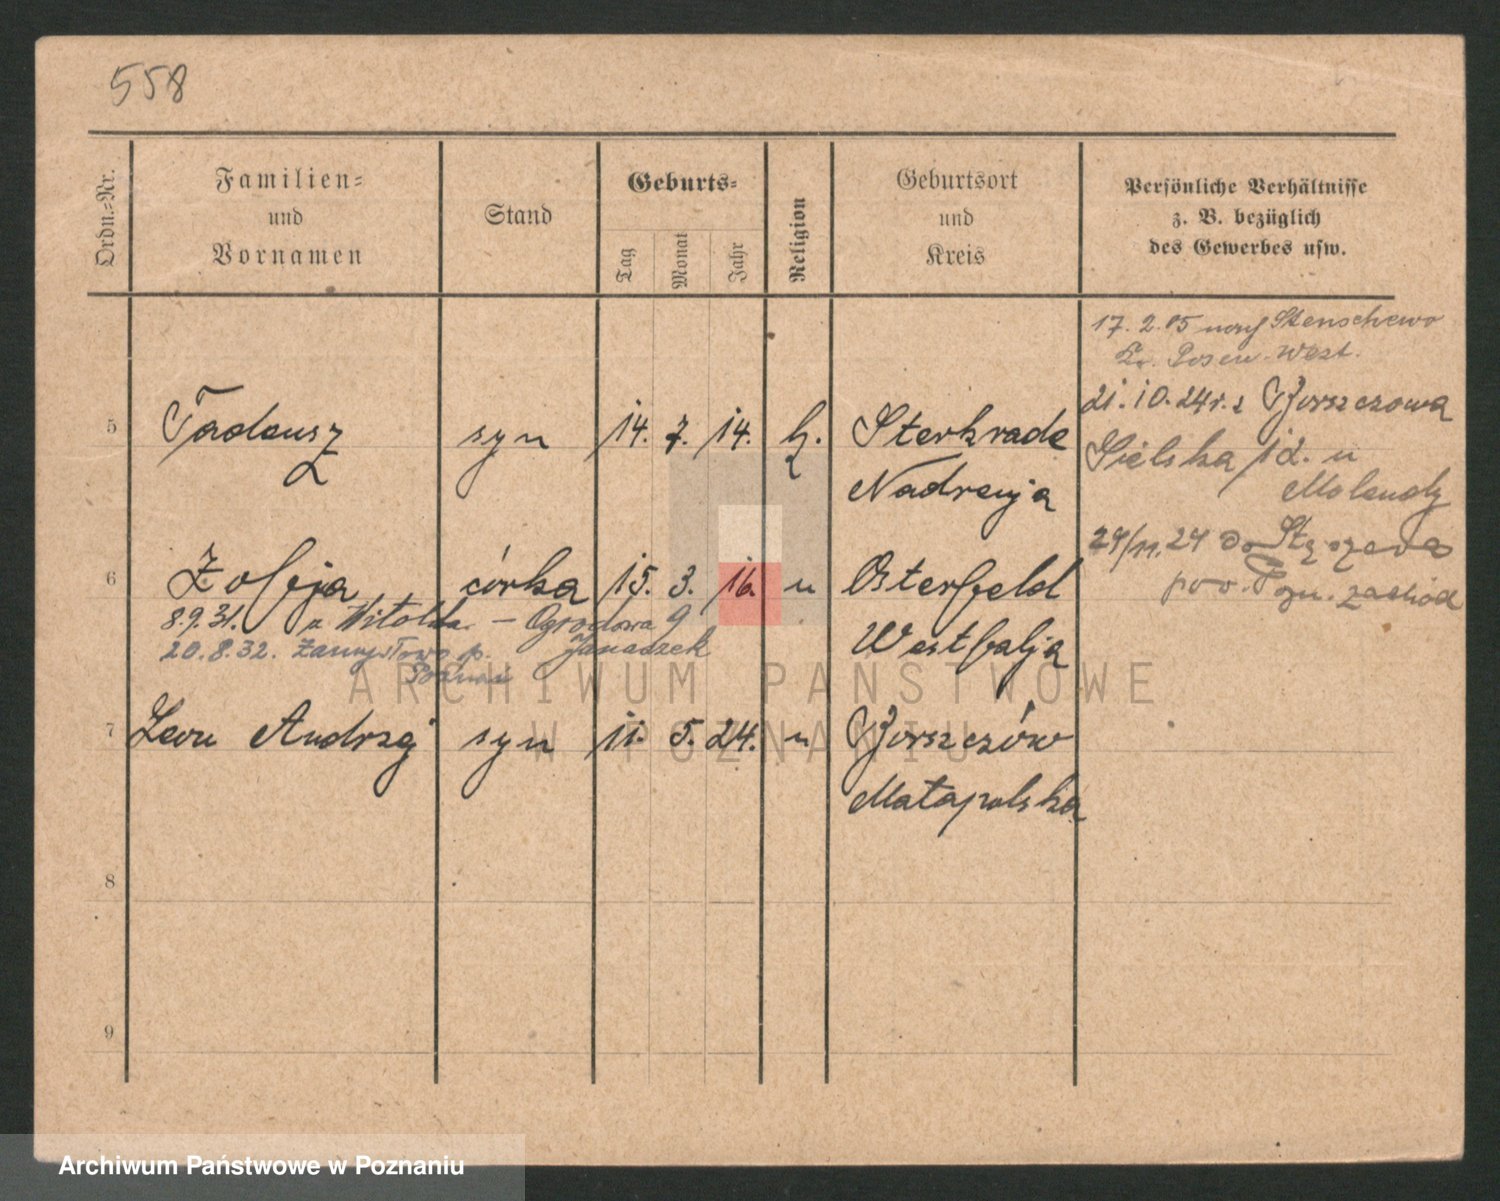 558
Ordn.-Nr.
Familien-
und
Vornamen
Stand
Geburts-
Tag
Monat
Jahr
Religion
Geburtsort
und
Kreis
Persönliche Verhältnisse
z. B. bezüglich
des Gewerbes usw.
17. 2. 05 nach Stenschewo
Kr. Posen-West.
21. 10. 24 r. z Borszczowa
Sielska 12. u
Molendy
5 Tadeusz syn 14. 7. 14. k. Sterkrade
Nadrenja
24/11. 24 do Stęszewa
pow. Pozn. zachód
6 Zofja córka 15. 3. 16. u Osterfeld
8.9.31. u Witolda – Ogrodowa 9
Westfalja
20.8.32. p. Janaszek
Poznań
7 Leon Andrzej syn 11. 5. 24. u Borszczów
Małapolska
8
9
ARCHIWUM PAŃSTWOWE
W POZNANIU
Archiwum Państwowe w Poznaniu